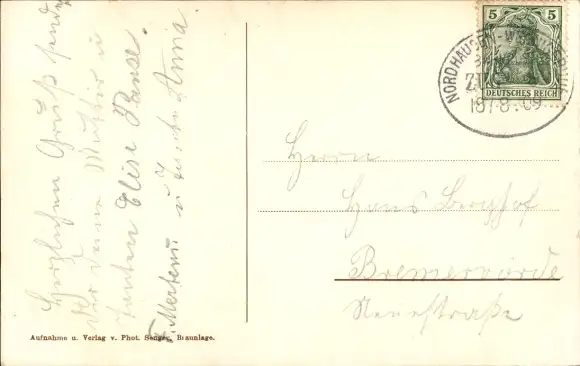 Herzlichen Gruß sendet
Dir deine Mutter u
Tanten Elise Panse
F. Mertens u Tante Anna
Aufnahme u. Verlag v. Phot. Senger, Braunlage.
5 5
DEUTSCHES REICH
NORDHAUSEN-W
ZUG
18.7.8.09
Herrn
Hans Berghof
Bremervörde
Neuestraße